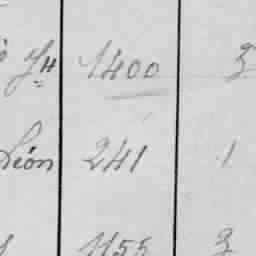 1400 3
Léon 241 1
1155 3